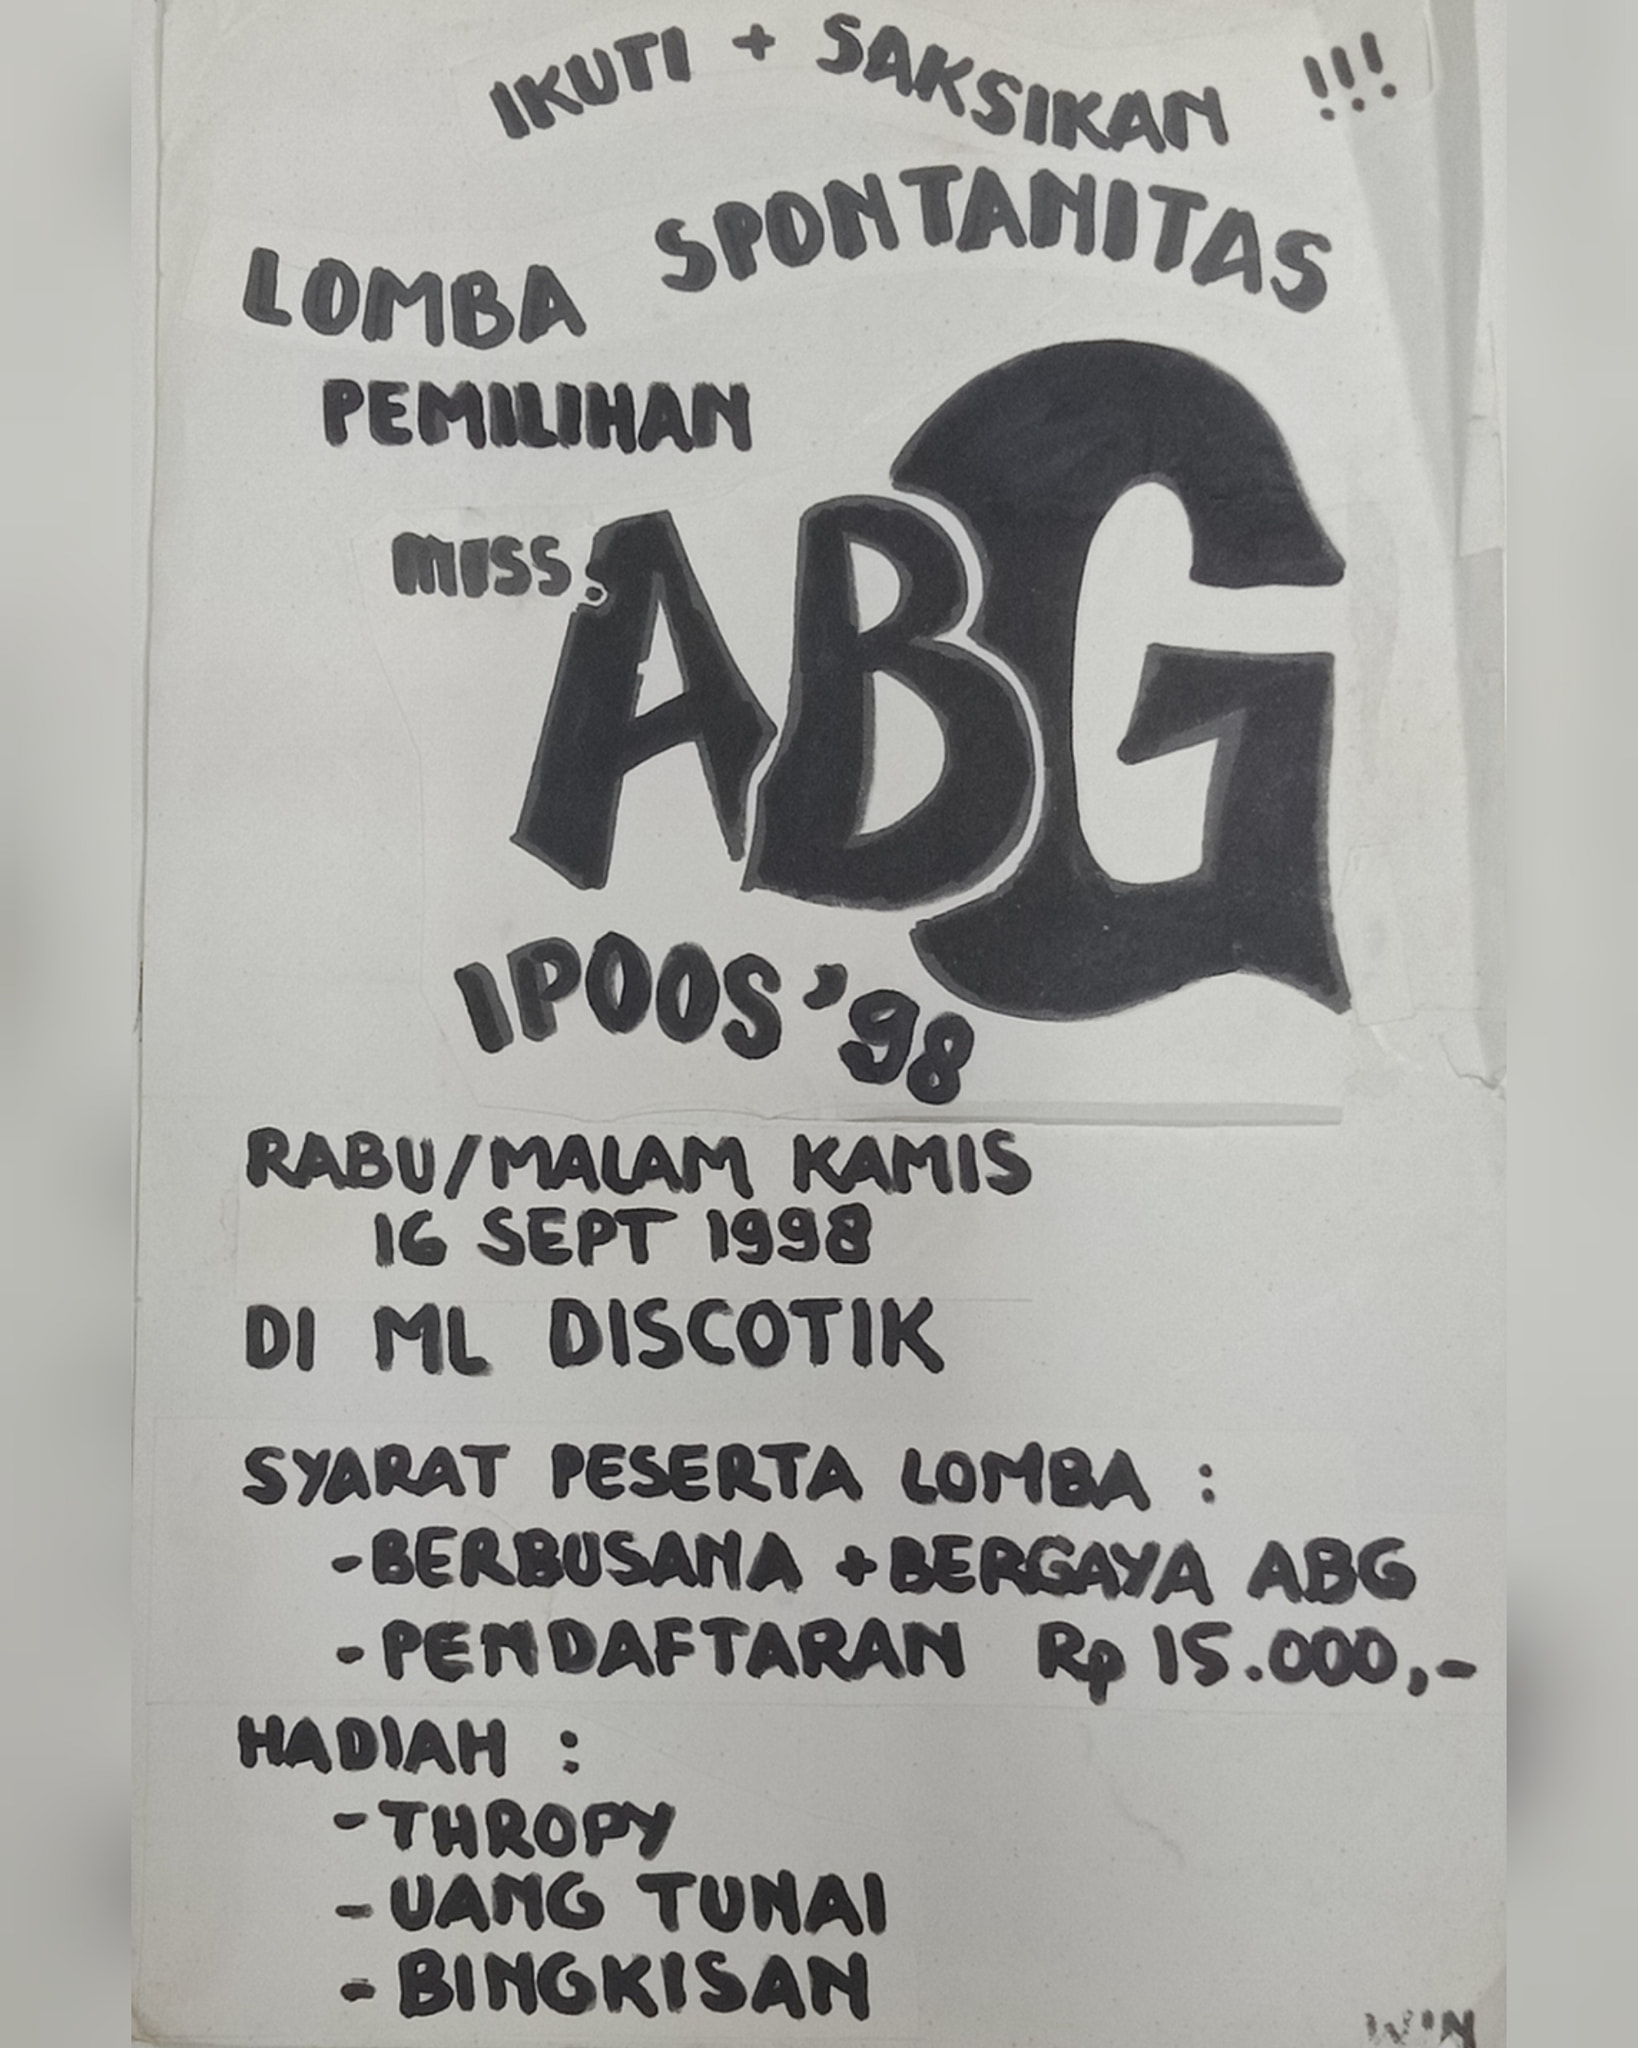 IKUTI + SAKSIKAN !!!
LOMBA SPONTANITAS
PEMILIHAN
MISS. ABG
IPOOS '98
RABU/MALAM KAMIS
16 SEPT 1998
DI ML DISCOTIK
SYARAT PESERTA LOMBA :
- BERBUSANA + BERGAYA ABG
- PENDAFTARAN Rp 15.000,-
HADIAH :
- THROPY
- UANG TUNAI
- BINGKISAN
WIN